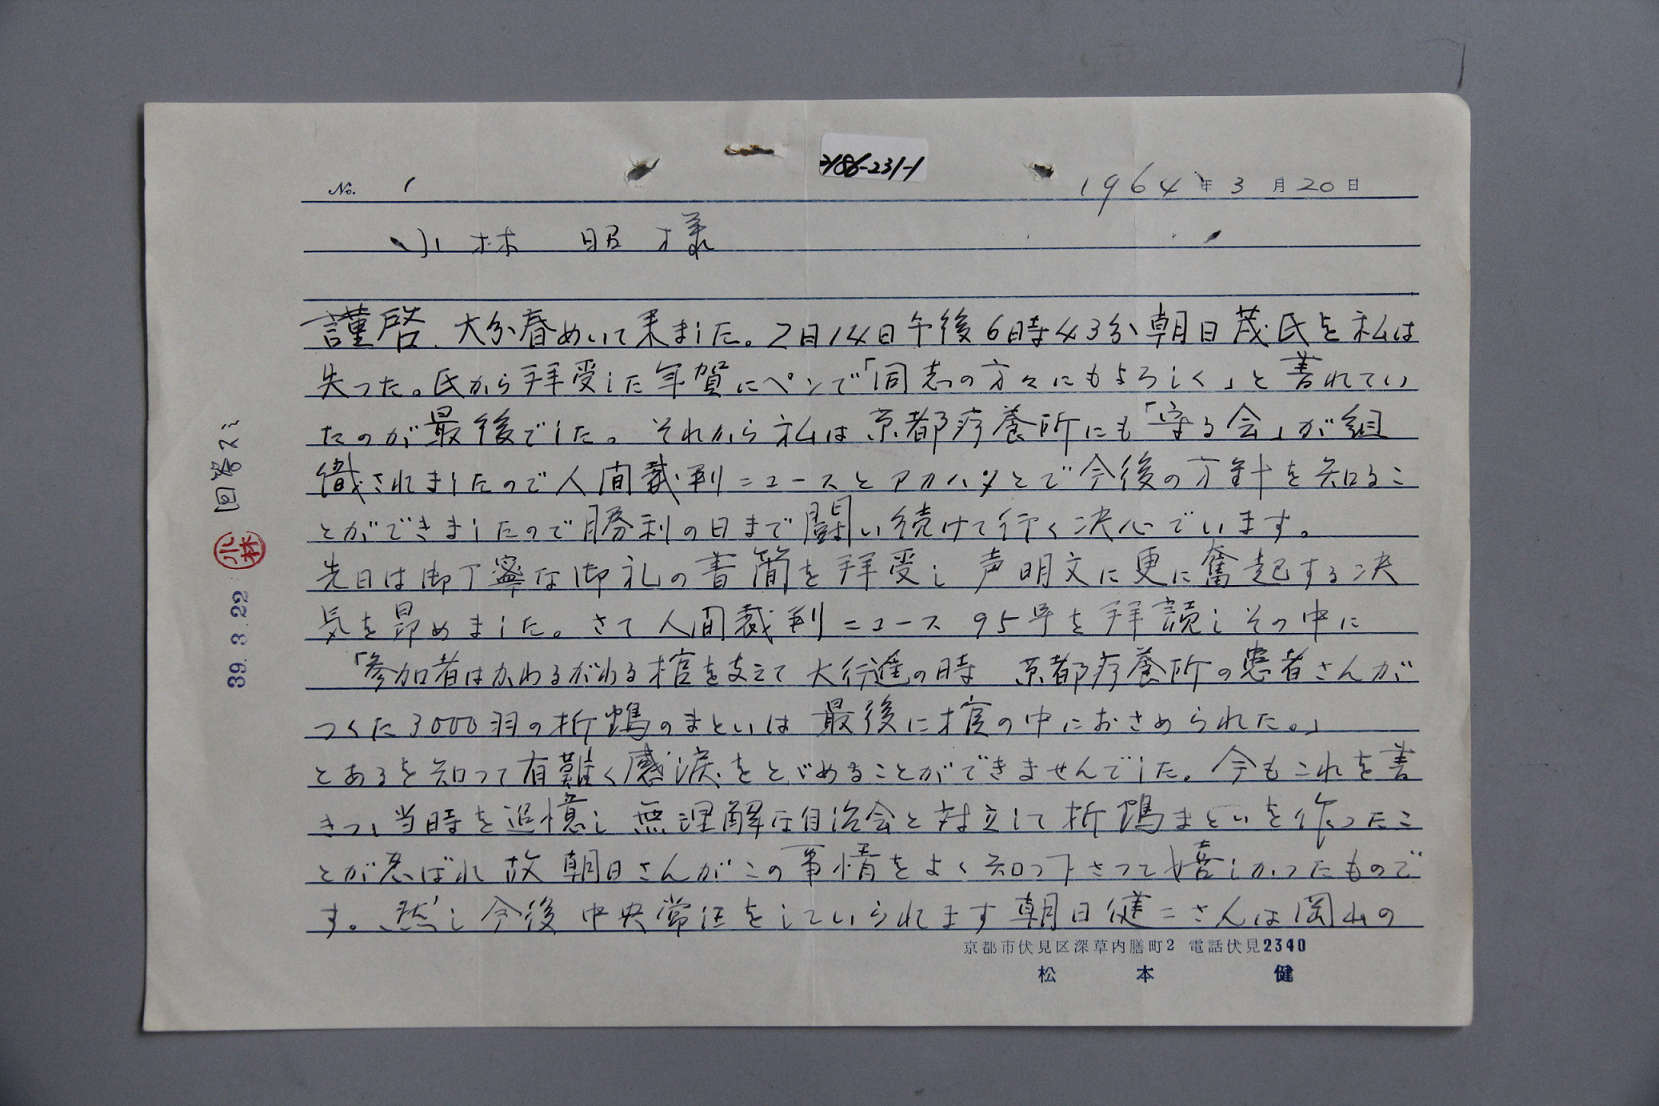 2186-231-1
No. 1 1964年3月20日
小林 昭様
謹啓、大分春めいて来ました。2月14日午後6時43分朝日茂氏を私は
失った。氏から拝受した年賀にペンで「同志の方々にもよろしく」と書れてい
たのが最後でした。それから私は京都療養所にも「守る会」が組
織されましたので人間裁判ニュースとアカハタとで今後の方針を知るこ
とができましたので勝利の日まで闘い続けて行く決心でいます。
先日は御丁寧な御礼の書簡を拝受し声明文に更に奮起する決
気を昂めました。さて人間裁判ニュース95号を拝読しその中に
「参加者はかわるがわる棺を支えて大行進の時 京都療養所の患者さんが
つくた3000羽の折鶴のまといは最後に棺の中におさめられた。」
とあるを知って有難く感涙をとどめることができませんでした。今もこれを書
きつゝ当時を追憶し無理解な自治会と対立して折鶴まといを作ったこ
とが忍ばれ故朝日さんがこの事情をよく知って下さって嬉しかったもので
す。然し今後中央常任をしていられます朝日健二さんは岡山の
京都市伏見区深草内膳町2 電話伏見2340
松本 健
回答スミ
小林
39.3.22